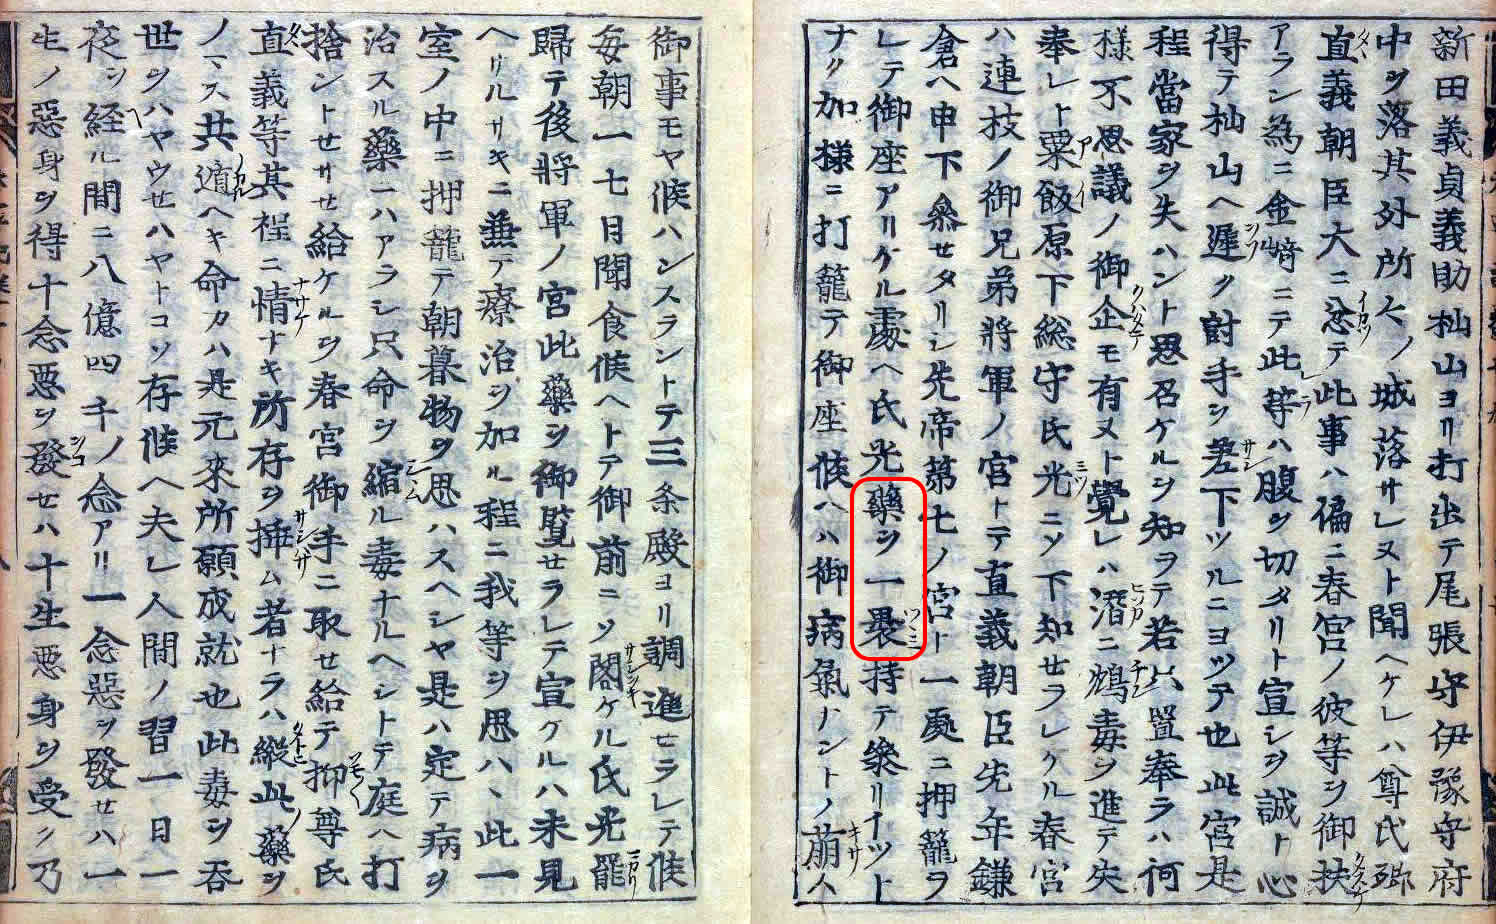 新田義貞義助杣山ヨリ打出テ尾張守伊豫守府
中ヲ落其外所々ノ城落サレヌト聞ヘケレハ尊氏卿
直義朝臣大ニ忿テ此事ハ偏ニ春宮ノ彼等ヲ御扶
アラン為ニ金﨑ニテ此等ハ腹ヲ切タリト宣シヲ誠ト心
得テ杣山ヘ遲ク討手ヲ差下ツルニヨツテ也此宮是
程當家ヲ失ハント思召ケルヲ知ヲテ若只置奉ラハ何
様不思議ノ御企モ有ヌト覺レハ潛ニ鴆毒ヲ進テ失
奉レト粟飯原下総守氏光ニソ下知セラレケル春宮
ハ連枝ノ御兄弟將軍ノ宮トテ直義朝臣先年鎌
倉ヘ申下参セタリシ先帝第七ノ宮ト一處ニ押籠ラ
レテ御座アリケル處ヘ氏光藥ヲ一裹持テ參リイツト
ナク加様ニ打籠テ御座候ヘハ御病氣ナントノ萠ス
御事モヤ候ハンスラントテ三条殿ヨリ調進セラレテ候
毎朝一七日聞食候ヘトテ御前ニソ閣ケル氏光龍
歸テ後將軍ノ宮此藥ヲ御覧セラレテ宣ケルハ未見
ヘサルサキニ兼テ療治ヲ加ル程ニ我等ヲ思ハヽ此一
室ノ中ニ押籠テ朝暮物ヲ思ハスヘシヤ是ハ定テ病ヲ
治スル藥ニハアラシ只命ヲ縮ル毒ナルヘシトテ庭ヘ打
捨ントセサセ給ケルヲ春宮御手ニ取セ給テ抑尊氏
直義等其程ニ情ナキ所存ヲ挿ム者ナラハ縱此藥ヲ
ノマス共遁ヘキ命カハ是元來所願成就也此毒ヲ呑
世ヲハヤウセハヤトコソ存候ヘ夫レ人間ノ習一日一
夜ヲ経ル間ニ八億四千ノ念アリ一念惡ヲ發セハ一
生ノ惡身ヲ得十念惡ヲ發セハ十生惡身ヲ受ク乃